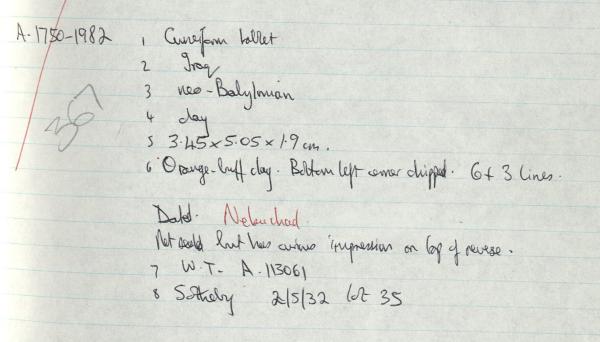 A.1750-1982 1 Cuneiform tablet
2 Iraq
367
3 neo-Babylonian
4 clay
5 3.45 x 5.05 x 1.9 cm.
6 Orange-buff clay. Bottom left corner chipped. 6 + 3 lines.
Dated. Nebuchad.
Not sealed but has curious impression on top of reverse.
7 W.T. A.113061
8 Sotheby 2/5/32 lot 35